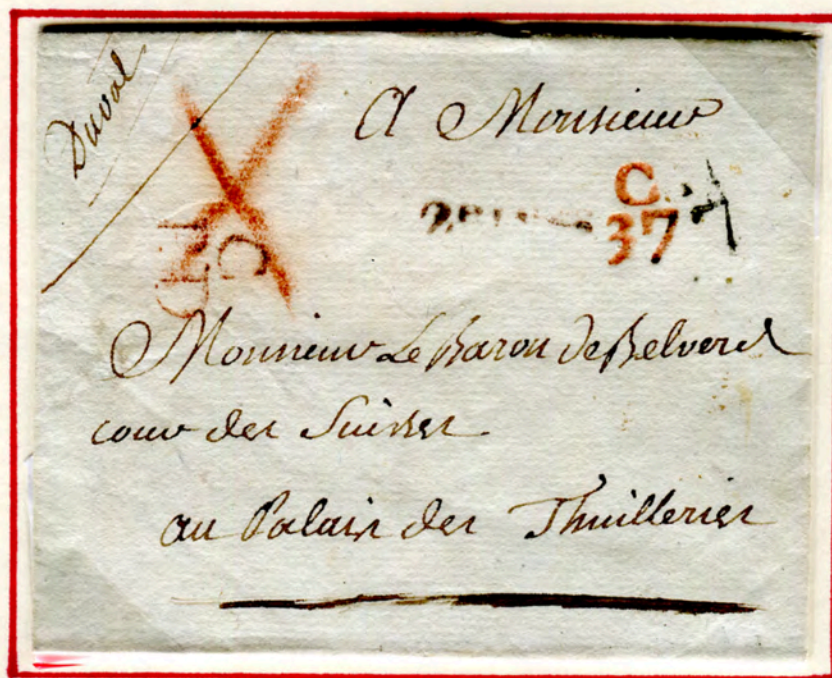 Duval
A Monsieur
C.
37
Monsieur Le Baron de Belverd
cour des Suisses
au Palais des Thuilleries